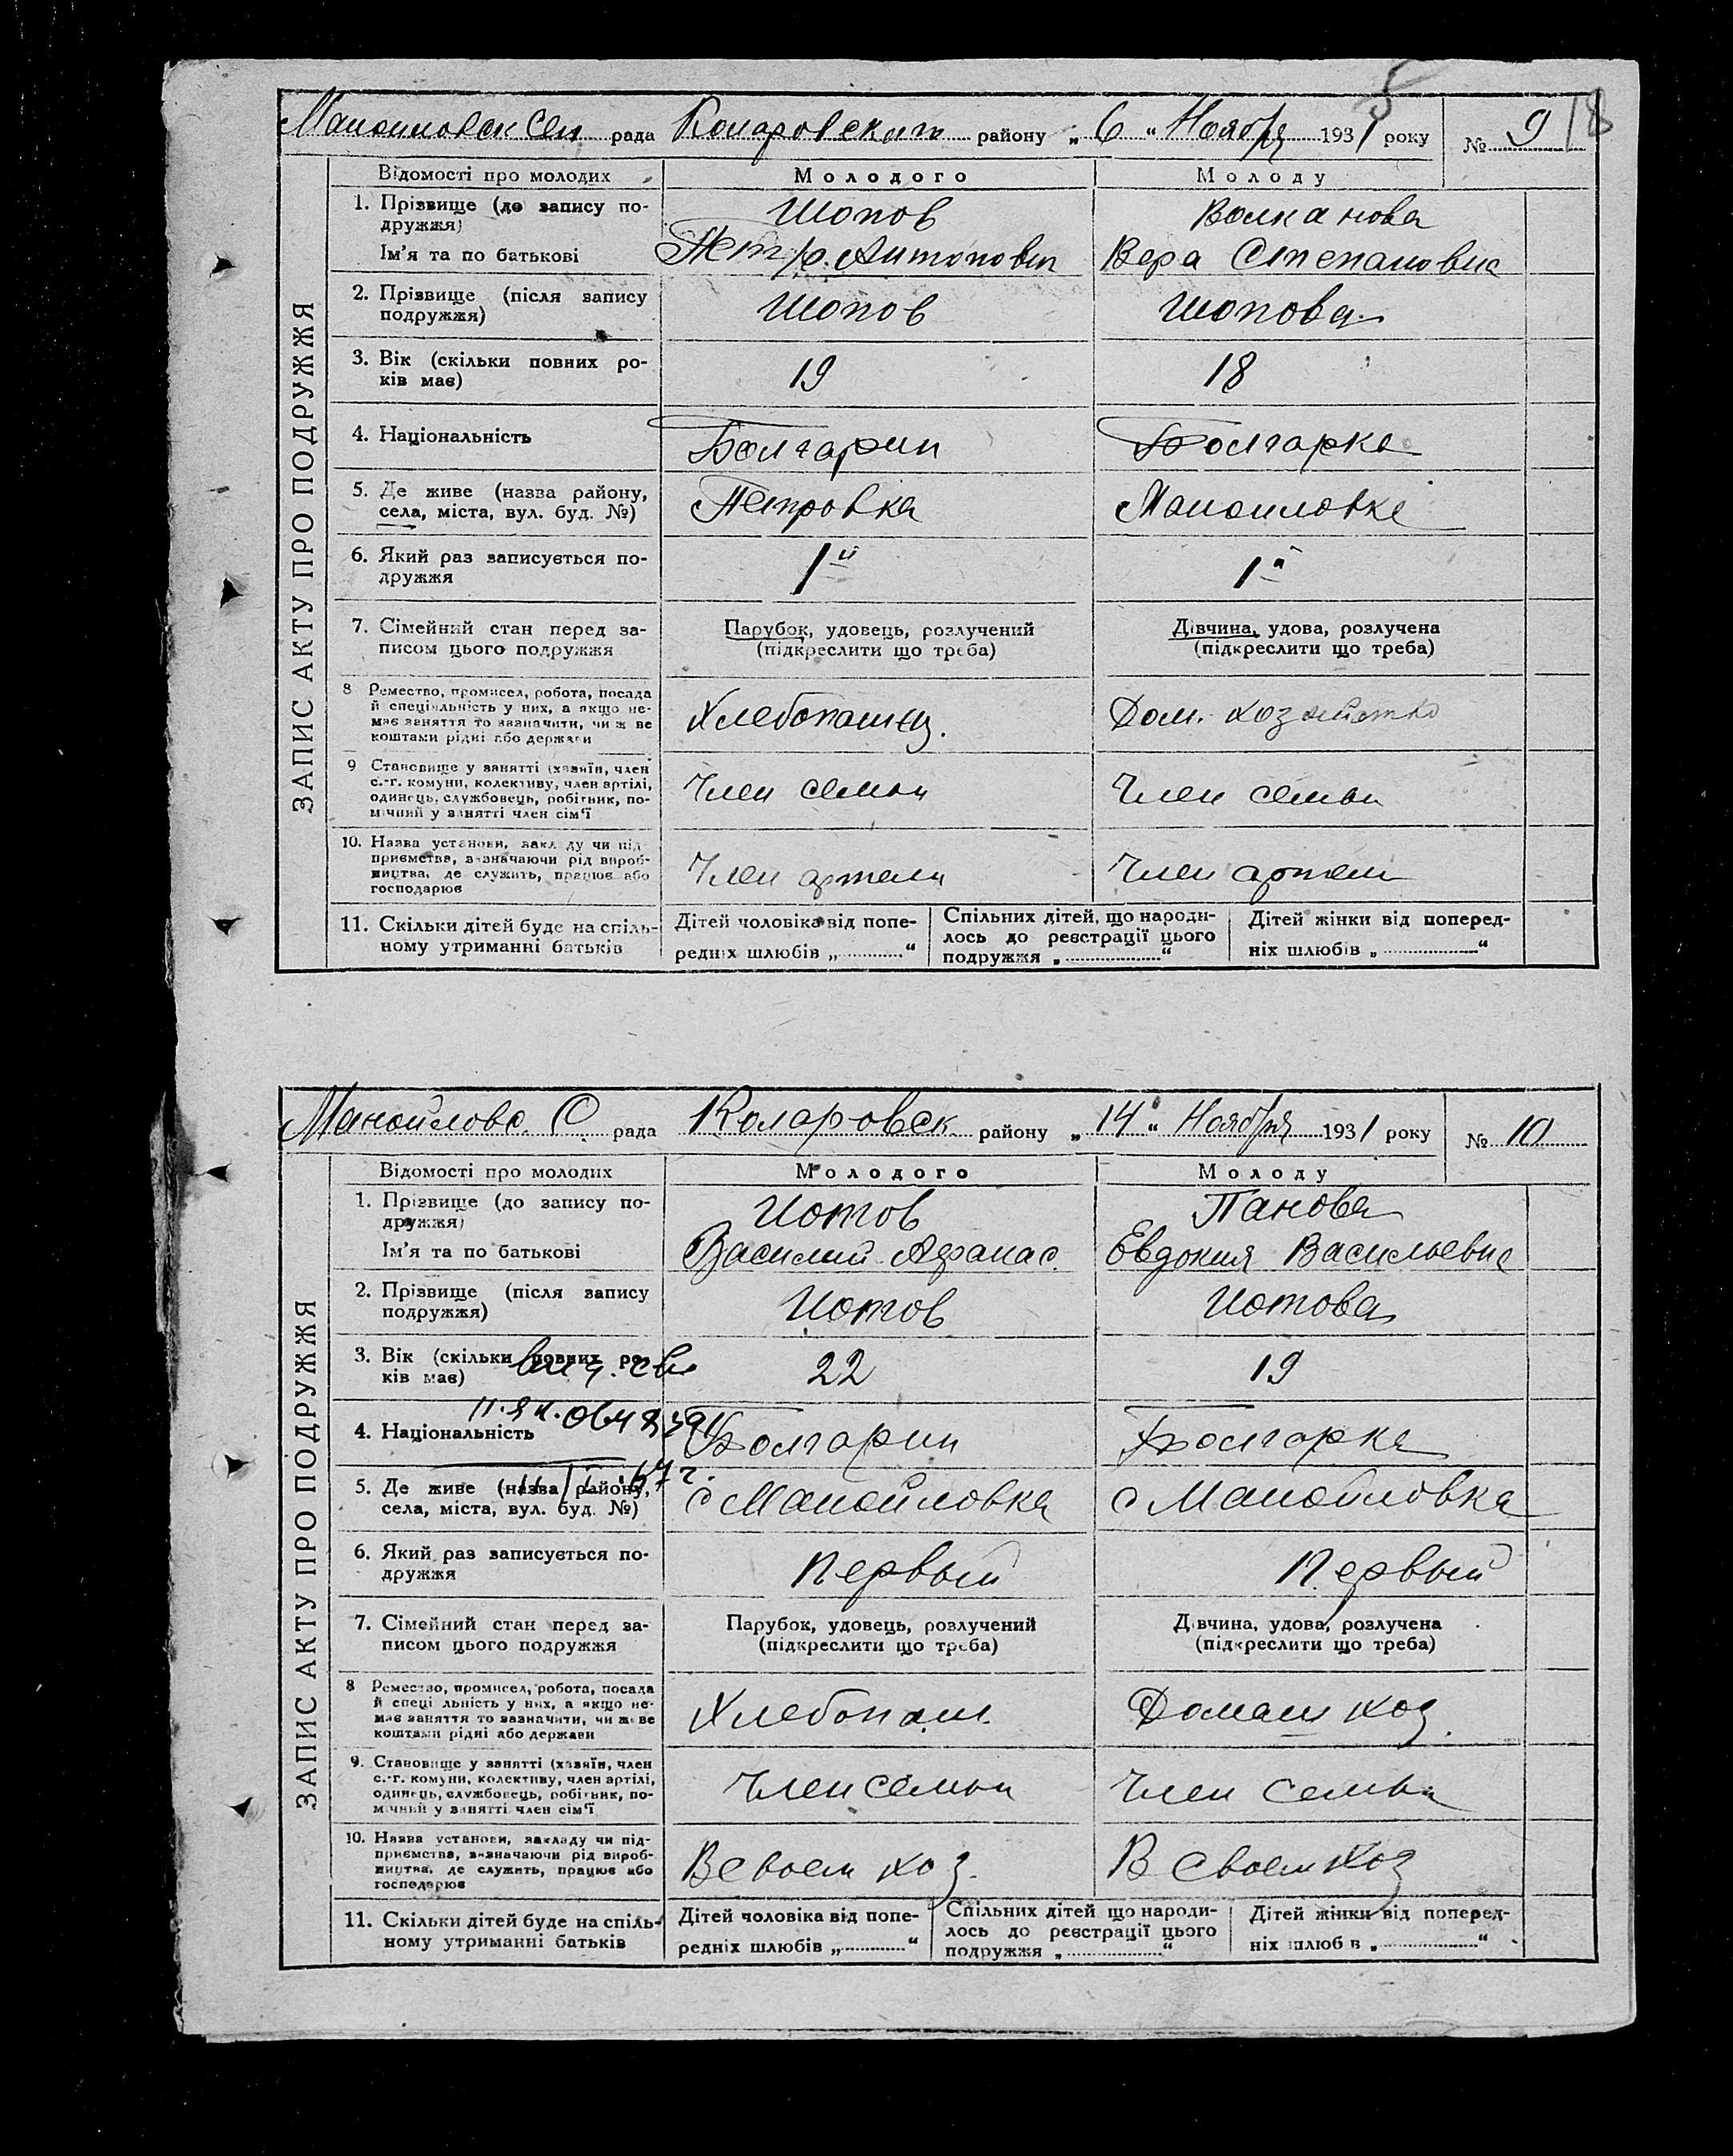 5
18
Маноиловск Сел рада Коларовским району „ 6 “ Ноября 1931 року № 9
Відомості про молодих
Молодого
Молоду
ЗАПИС АКТУ ПРО ПОДРУЖЖЯ
1. Прізвище (до запису по-
дружжя)
Шопов
Волканова
Ім'я та по батькові
Петр. Антонович
Вера Степановна
2. Прізвище (після запису
подружжя)
Шопов
Шопова
3. Вік (скільки повних ро-
ків має)
19
18
4. Національність
Болгарин
Болгарка
5. Де живе (назва району,
села, міста, вул. буд. №)
Петровка
Маноиловке
6. Який раз записується по-
дружжя
1й
1й
7. Сімейний стан перед за-
писом цього подружжя
Парубок, удовець, розлучений
(підкреслити що треба)
Дівчина, удова, розлучена
(підкреслити що треба)
8 Ремество, промисел, робота, посада
й спеціяльність у них, а якщо не-
має заняття то зазначити, чиж ве
коштами рідні або держави
Хлебопашец.
Дом. хозяйство
9 Становище у занятті (хазяїн, член
с.-г. комуни, колективу, член артілі,
одинець, службовець, робітник, по-
мічний у занятті член сім'ї
Член семьи
Член семьи
10. Назва установи, закладу чи під-
приємства, зазначаючи рід вироб-
ництва, де служить, працює або
господарює
Член артели
Член артели
11. Скільки дітей буде на спіль-
ному утриманні батьків
Дітей чоловіка від попе-
редніх шлюбів „ “
Спільних дітей, що народи-
лось до реєстрації цього
подружжя „ “
Дітей жінки від поперед-
ніх шлюбів „ “
Манойловс. С рада Коларовск району „ 14 “ Ноября 1931 року № 10
Відомості про молодих
Молодого
Молоду
ЗАПИС АКТУ ПРО ПОДРУЖЖЯ
1. Прізвище (до запису по-
дружжя)
Иотов
Панова
Ім'я та по батькові
Василий Афанас.
Евдокия Васильевна
2. Прізвище (після запису
подружжя)
Иотов
Иотова
3. Вік (скільки повних ро-
ків має)
22
19
4. Національність
Болгарин
Болгарка
5. Де живе (назва району,
села, міста, вул. буд. №)
с Манойловка
с Манойловка
6. Який раз записується по-
дружжя
Первый
Первый
7. Сімейний стан перед за-
писом цього подружжя
Парубок, удовець, розлучений
(підкреслити що треба)
Дівчина, удова, розлучена
(підкреслити що треба)
8 Ремество, промисел, робота, посада
й спеціяльність у них, а якщо не-
має заняття то зазначити, чиж ве
коштами рідні або держави
Хлебопаш.
Домаш хоз.
9. Становище у занятті (хазяїн, член
с.-г. комуни, колективу, член артілі,
одинець, службовець, робітник, по-
мічний у занятті член сім'ї
Член семьи
Член семьи
10. Назва установи, закладу чи під-
приємства, зазначаючи рід вироб-
ництва, де служить, працює або
господарює
В своем хоз.
В своем хоз
11. Скільки дітей буде на спіль-
ному утриманні батьків
Дітей чоловіка від попе-
редніх шлюбів „ “
Спільних дітей що народи-
лось до реєстрації цього
подружжя „ “
Дітей жінки від поперед-
ніх шлюбів „ “